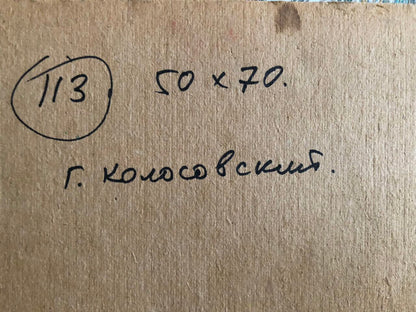 113 50 x 70.
г. Колосовский.